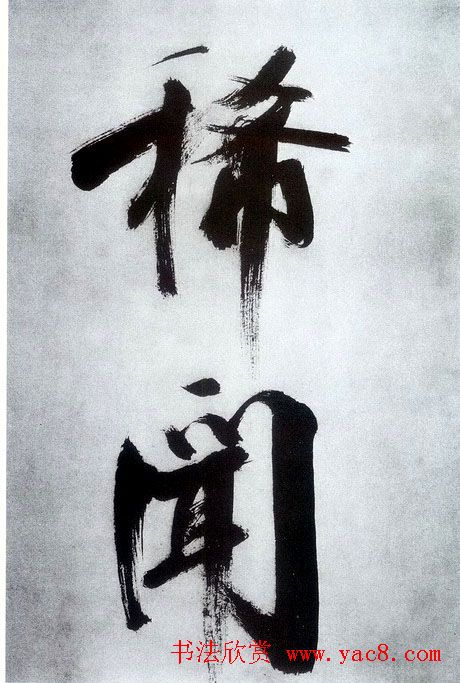 稀
闻
书法欣赏 www.yac8.com